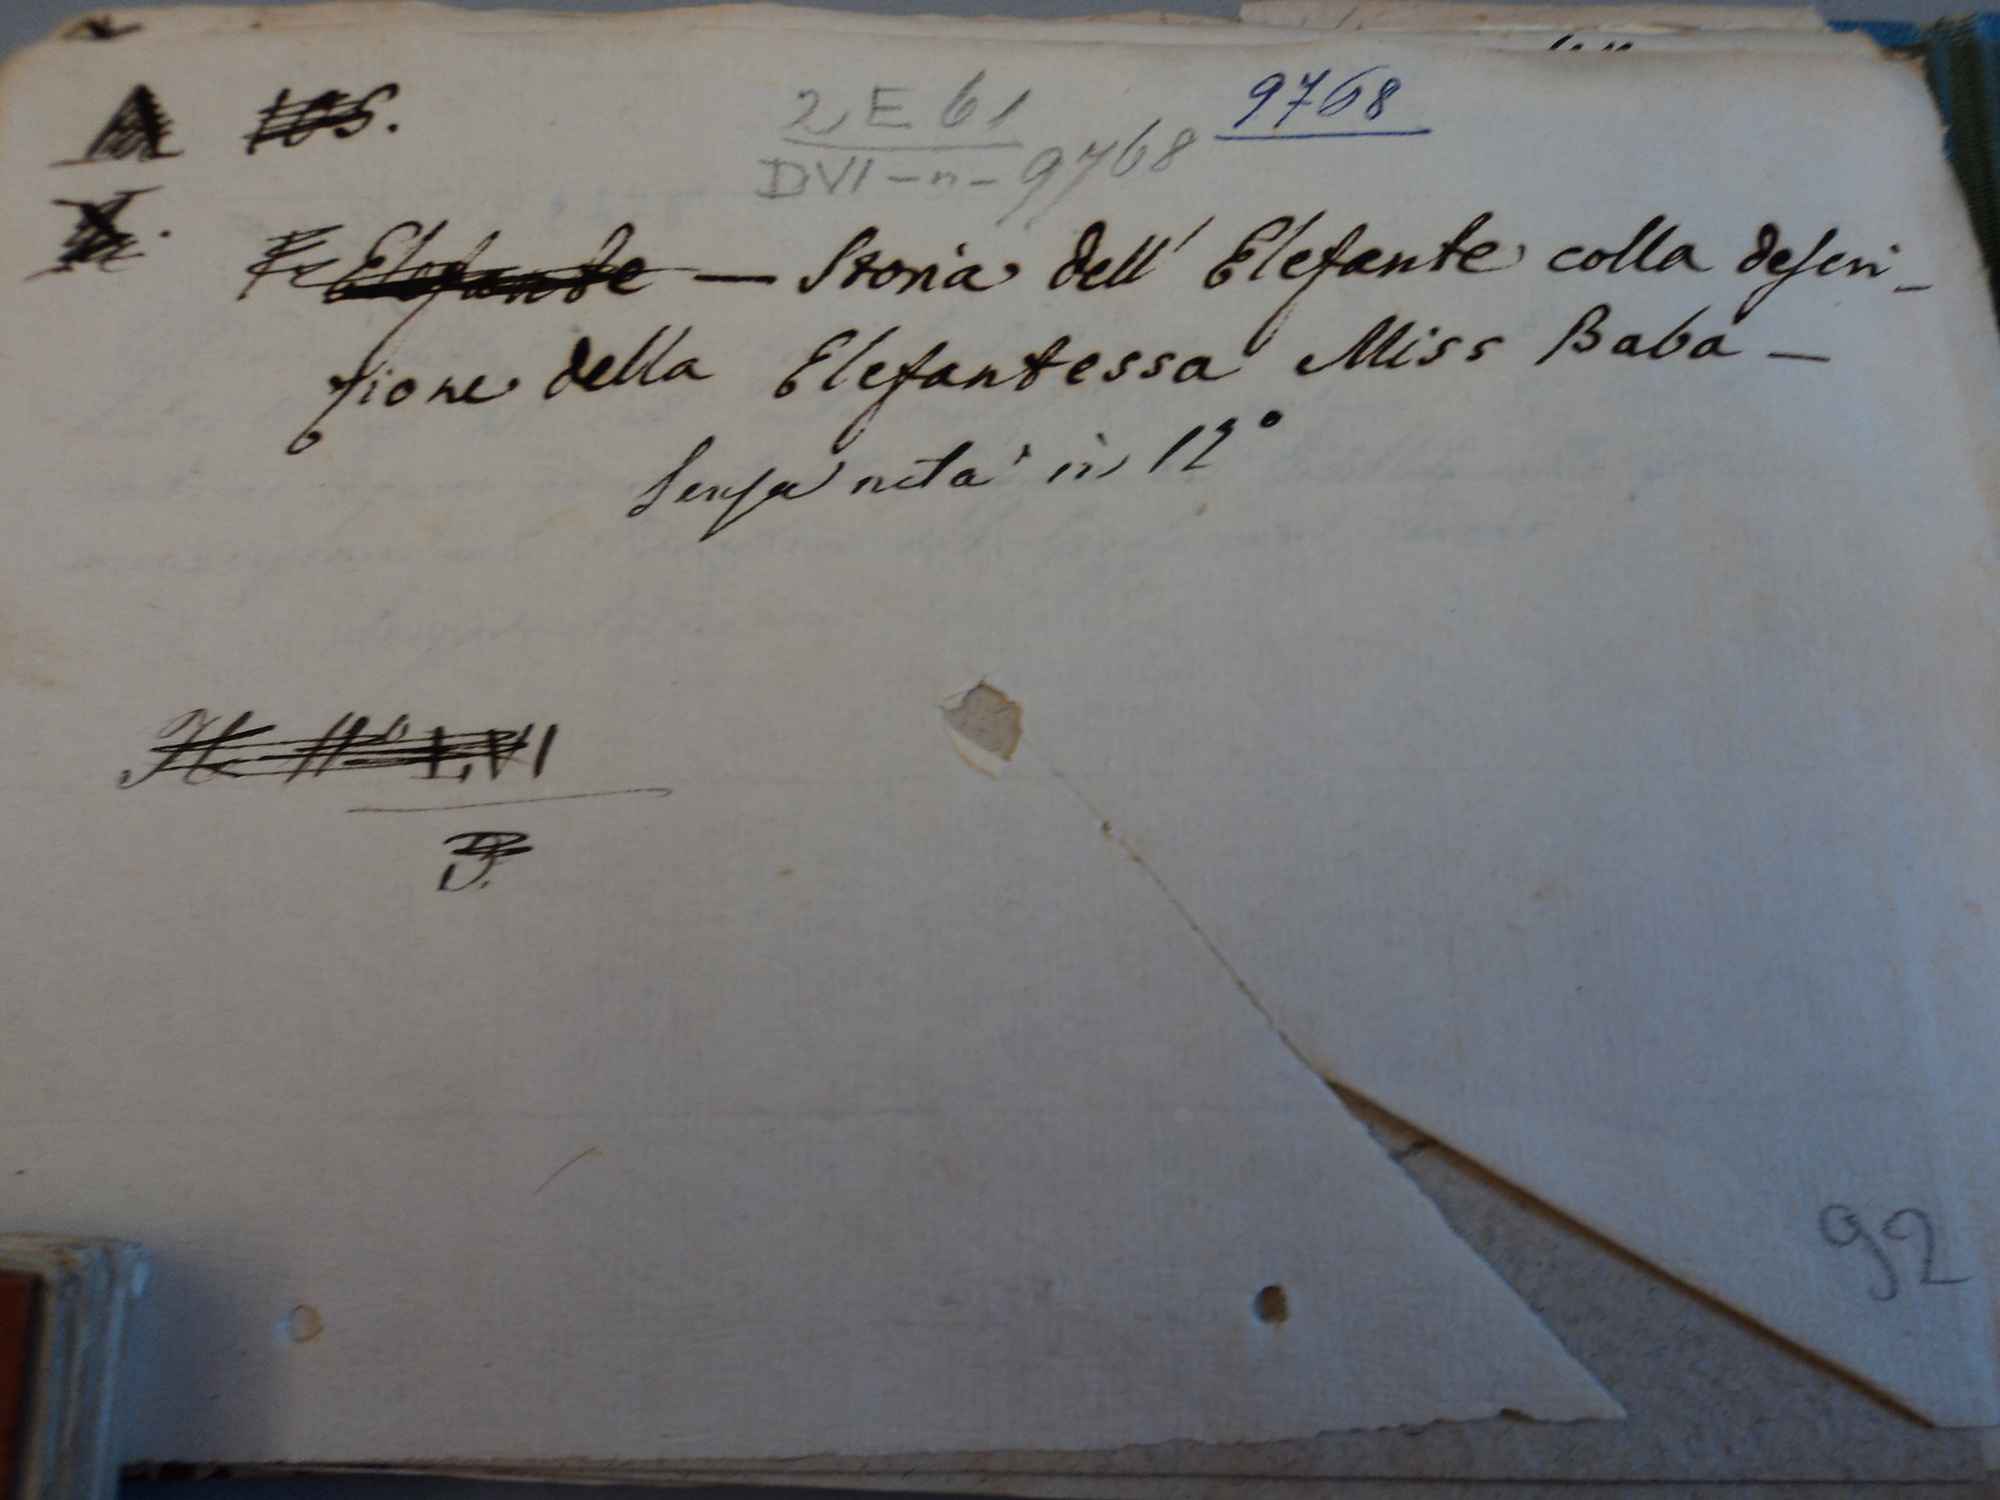 A 105.
2 E 61
9768
DVI-n-9768
X.
Elefante — Storia dell' Elefante colla descri-
zione della Elefantessa Miss Baba —
Senza nota in 12°
N° LVI
D.
92